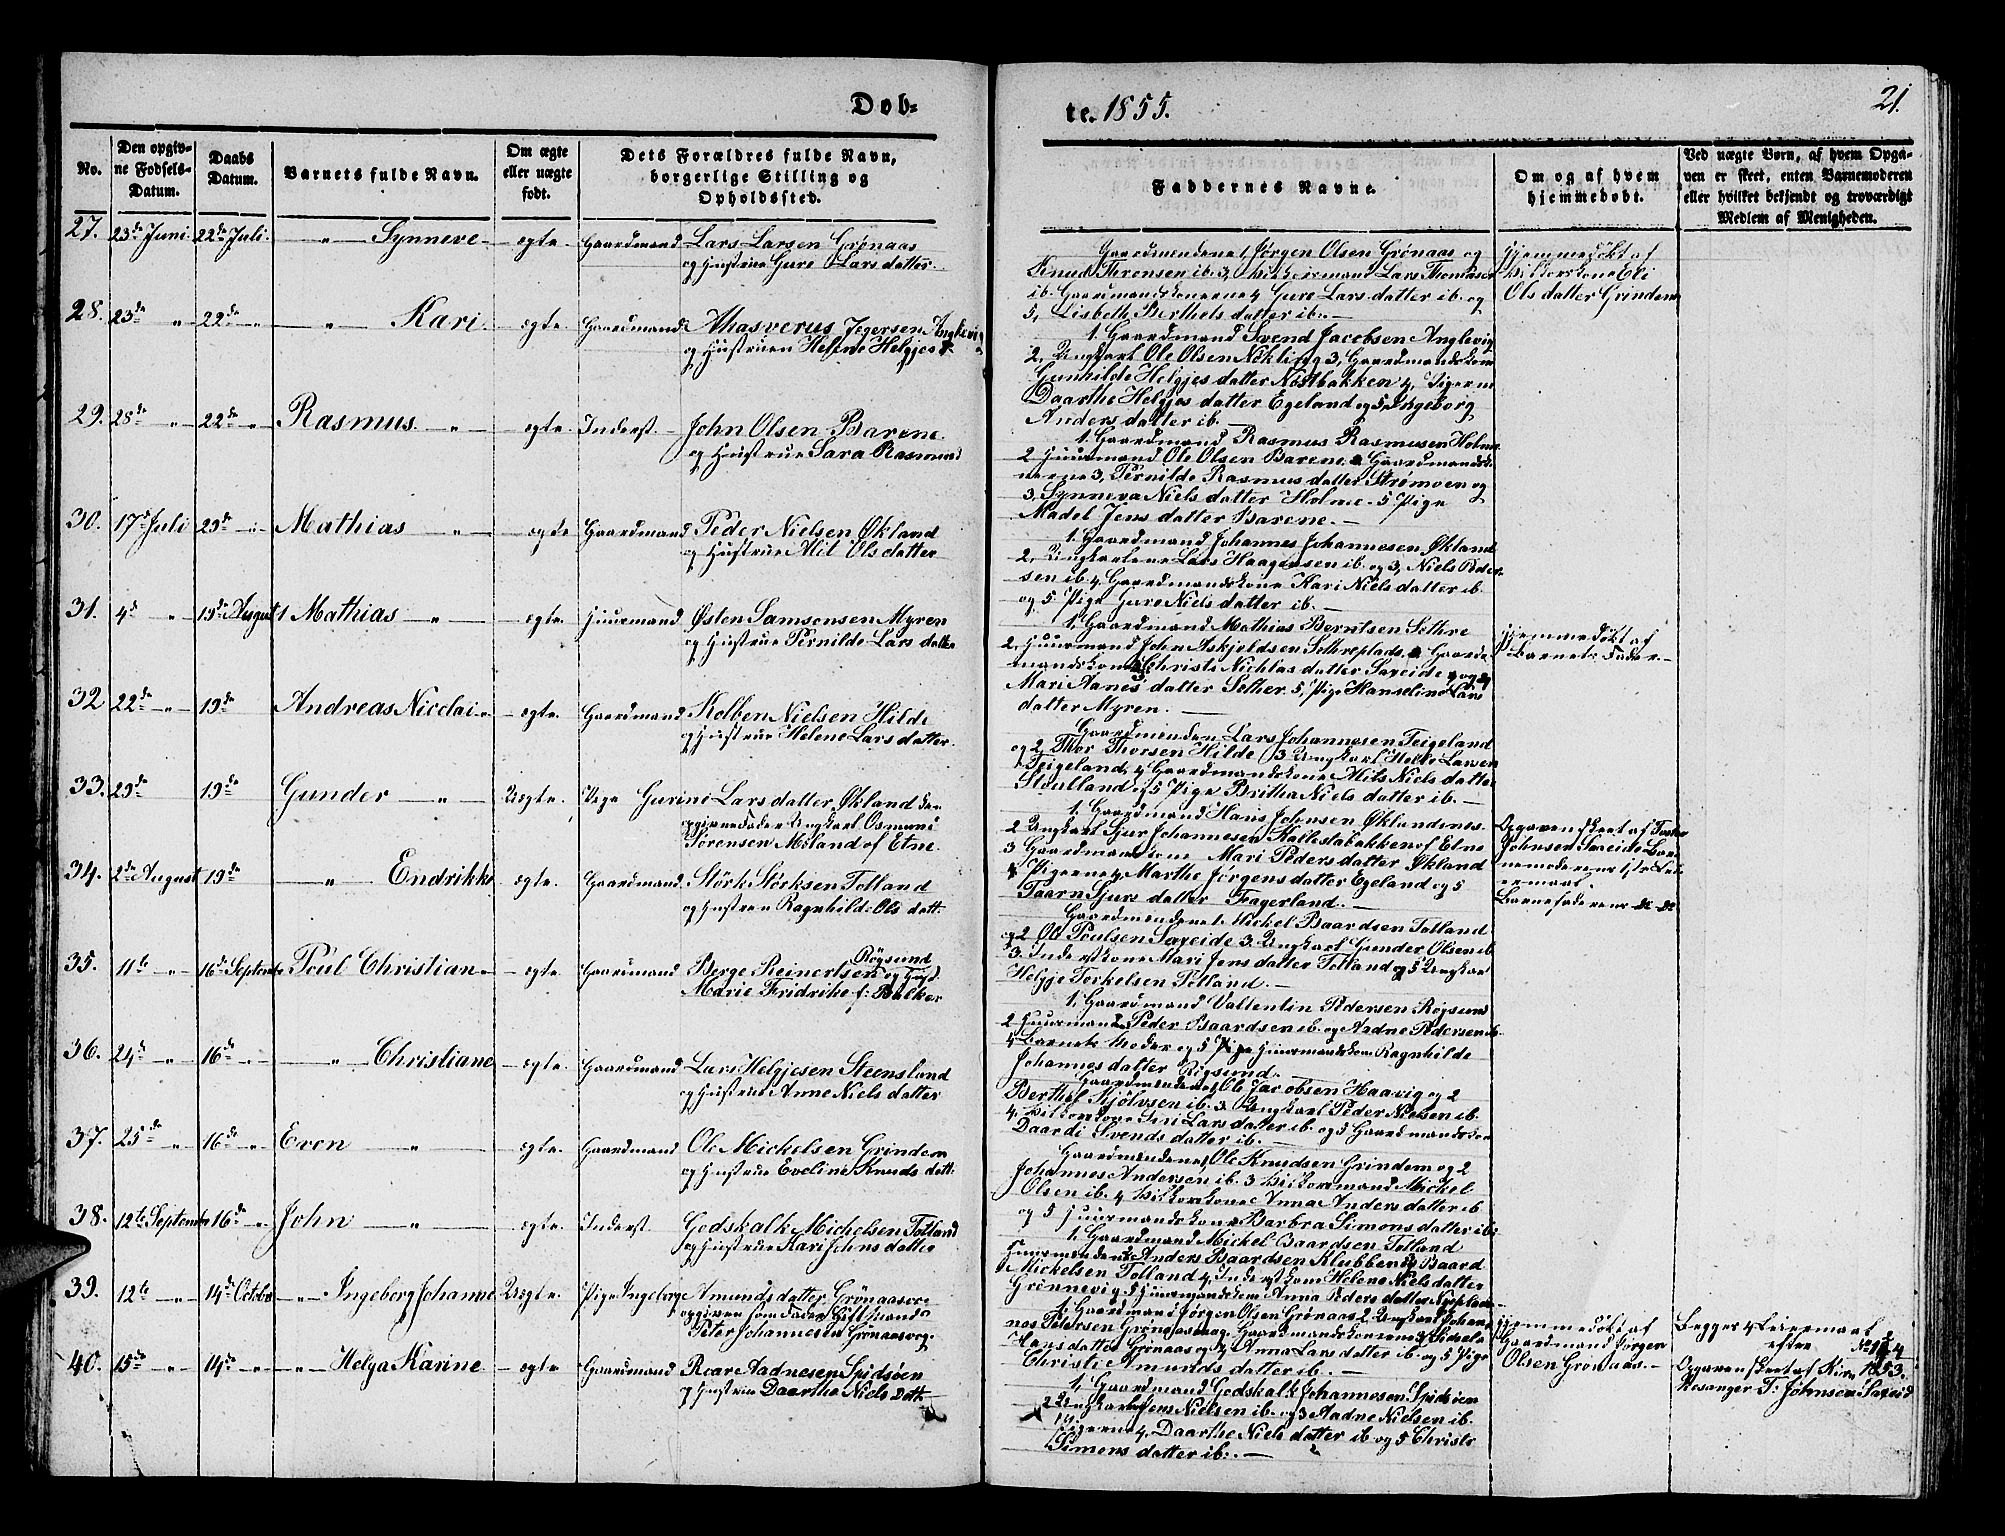 Døb-
No.
Den opgiv-
ne Fødsels-
Datum.
Daabs
Datum.
Barnets fulde Navn.
Om ægte
eller uægte
født.
Dets Forældres fulde Navn,
borgerlige Stilling og
Opholdssted.
27. 23de Juni 22de Juli - " - Synneve - ægte. Gaardmand Lars Larsen Grønaas
og Hustrue Guro Lars datter.
28. 23de " 22de " - " - Kari. - ægte. Gaardmand Ahasverus Jegersen Anglevig
og Hustruen Helene Helgjes d.
29. 28de " 22de " Rasmus " - ægte. Inderst - John Olsen Barene.
og Hustrue Sara Rasmusd
30. 17de Juli 29de " Mathias - " - ægte Gaardmand Peder Nielsen Økland
og Hustrue Alit Ols datter
31. 4de " 19de August Mathias - " - ægte. Huurmand Østen Samsonsen Myren
og Hustrue Pernilde Lars datter
32 22de " 19de Andreas Nicolai " - ægte. Gaardmand Kolben Nielsen Hilde
og Hustrue Helene Lars datter.
33. 29de 19de Gunder - " - Uægte. Pige Gurine Lars datter Økland den
opgivne Fader Ungkarl Osmund
Sørensen Møland af Etne.
34. 2de August 19de - " - Endrikke ægte. Gaardmand Størk Størksen Totland
og Hustruen Ragnhild Ols datt:
35. 11te " 16de September Poul Christian " - ægte. Gaardmand Børge Reinertsen Røgsund og Hust
Marie Fridrike f: Balker
36. 24de " 16de " - " - Christiane - ægte. Gaardmand Lars Helgjesen Steensland
og Hustrue Anne Niels datter
37. 25de " 16de " Even - " - ægte. Gaardmand Ole Mickelsen Grindem
og Hustrue Eveline Knuds datt:
38. 12te September 16de " John - " - ægte. Inderst Godskalk Michelsen Totland
og Hustrue Kari Johns datter
39. 12te " 14de Octobr - " - Ingeborg Johanne Uægte. Pige Ingeborg Amunds datter Grønaasvog
opgiven som Fader Gift Mand
Peter Johannesen Grønaasvog.
40. 15de " 14de " " Helga Karine - ægte. Gaardmand Roar Aadnesen Spidsøen
og Hustrue Daarthe Niels Datt.
te. 1855.
21.
Faddernes Navne.
Om og af hvem
hjemmedøbt.
Ved uægte Børn, af hvem Opga-
ven er skeet, enten Barnemoderen
eller hvilket bekjendt og troværdigt
Medlem af Menigheden.
Gaardmændene 1, Jørgen Olsen Grønaas og
Knud Thorensen ib. 3, Lars Thomasen
ib. Gaardmandskonerne 4 Guro Lars datter ib. og
5, Lisbeth Berthels datter ib. -
Hjemmedøbt af
Eli
Ols datter Grindem
1. Gaardmand Svend Jacobsen Anglevig
2, Ungkarl Ole Olsen Nekling 3, Gaardmandskone
Gunhilde Helgjes datter Nøstbakken 4, Pigerne
Daarthe Helgjes datter Egeland og 5, Ingeborg
Anders datter ib. -
1. Gaardmand Rasmus Rasmusen Holme
2 Huurmand Ole Olsen Barene, Gaardmandsko-
nerne 3, Pernilde Rasmus datter Strømoen og
3, Synneva Niels datter Holme. 5 Pige
Madel Jens datter Barene. -
1. Gaardmand Johannes Johannesen Økland
2, Ungkarlene Lars Haagensen ib. og 3, Niels Peder-
sen ib. 4 Gaardmandskone Kari Niels datter ib.
og 5. Pige Guro Niels datter ib. -
1. Gaardmand Mathias Berntsen Sethre
2, Huurmand John Askjeldsen Sethreplads, Gaard-
mandskone Christi Nichlas datter Saxeide og
Mari Aanes datter Sether. 5, Pige Hanseline Lars
datter Myren. -
Hjemmedøbt af
Barnets Fader. -
Gaardmænden Lars Johannesen Teigeland
og 2, Thor Thorsen Hilde 3 Ungkarl Helje Larsen
Teigeland, 4 Gaardmandskone Alits Niels datter
Stoulland og 5 Pige Britha Niels datter ib. -
1. Gaardmand Hans Johnsen Øklandsnes.
2 Ungkarl Sjur Johannesen Kallestabakken af Etne
3 Gaardmandskone Mari Peders datter Økland
4 Pigerne 4 Marthe Jørgens datter Egeland og 5
Taarn Sjurs datter Fagerland. -
Opgaven skeet af
Johnsen Saxeide Bar-
nemoderens 1ste Lei-
ermaal.
Barnefaderens do do
Gaardmændene 1, Mickel Baardsen Totland
og 2 Ole Poulsen Saxeide 3. Ungkarl Gunder Olsen ib
3. Inderstkone Mari Jens datter Totland og 5 Ungkarl
Helgje Torkelsen Totland. -
1, Gaardmand Vallentin Pedersen Røgsund
2 Huurmand Peder Baardsen ib. og Aadne Pedersen ib.
4 Barnets Moder og 5 Pige Huurmandskone Ragnhilde
Johannes datter Røgsund. -
Gaardmændene, Ole Jacobsen Haavig og 2
Berthel Kjølvsen ib. 3. Ungkarl Peder Nielsen ib.
4. Lars datter ib. og 5 Gaardmandskone
Daardi Svends datter ib. -
Gaardmændene, Ole Knudsen Grindem og 2
Johannes Andersen ib. 3 Mickel
Olsen ib. 4 Anna Anders datter ib
og 5 Huurmandskone Barbra Simons datter ib:
1, Gaardmand Mickel Baardsen Totland
Huurmændene Anders Baardsen Klubben Baard
Mickelsen Totland 4, Inderstkone Helene Niels datter
Grønnevig 5 Huurmandskone Anna Peders datter
1. Gaardmand Jørgen Olsen Grønaas 2. Ungkarl Johan-
nes Petersen Grønaasvog. Gaardmandskonerne
Hans datter Grønaas og Anna Lars datter ib. og 5 Pige
Christi Amunds datter ib. -
Hjemmedøbt af
Gaardmand Jørgen
Olsen Grønaas. -
Begges 4 Leiermaal
efter
1853.
Opgaven skeet af Kir-
kesanger T: Johnsen Saxeid
1, Gaardmand Godskalk Johannesen Spidsøen
2 Ungkarlene Jens Nielsen ib. og 3 Aadne Nielsen ib.
Pigerne 4, Daarthe Niels datter ib og 5 Christi
Simons datter ib: -